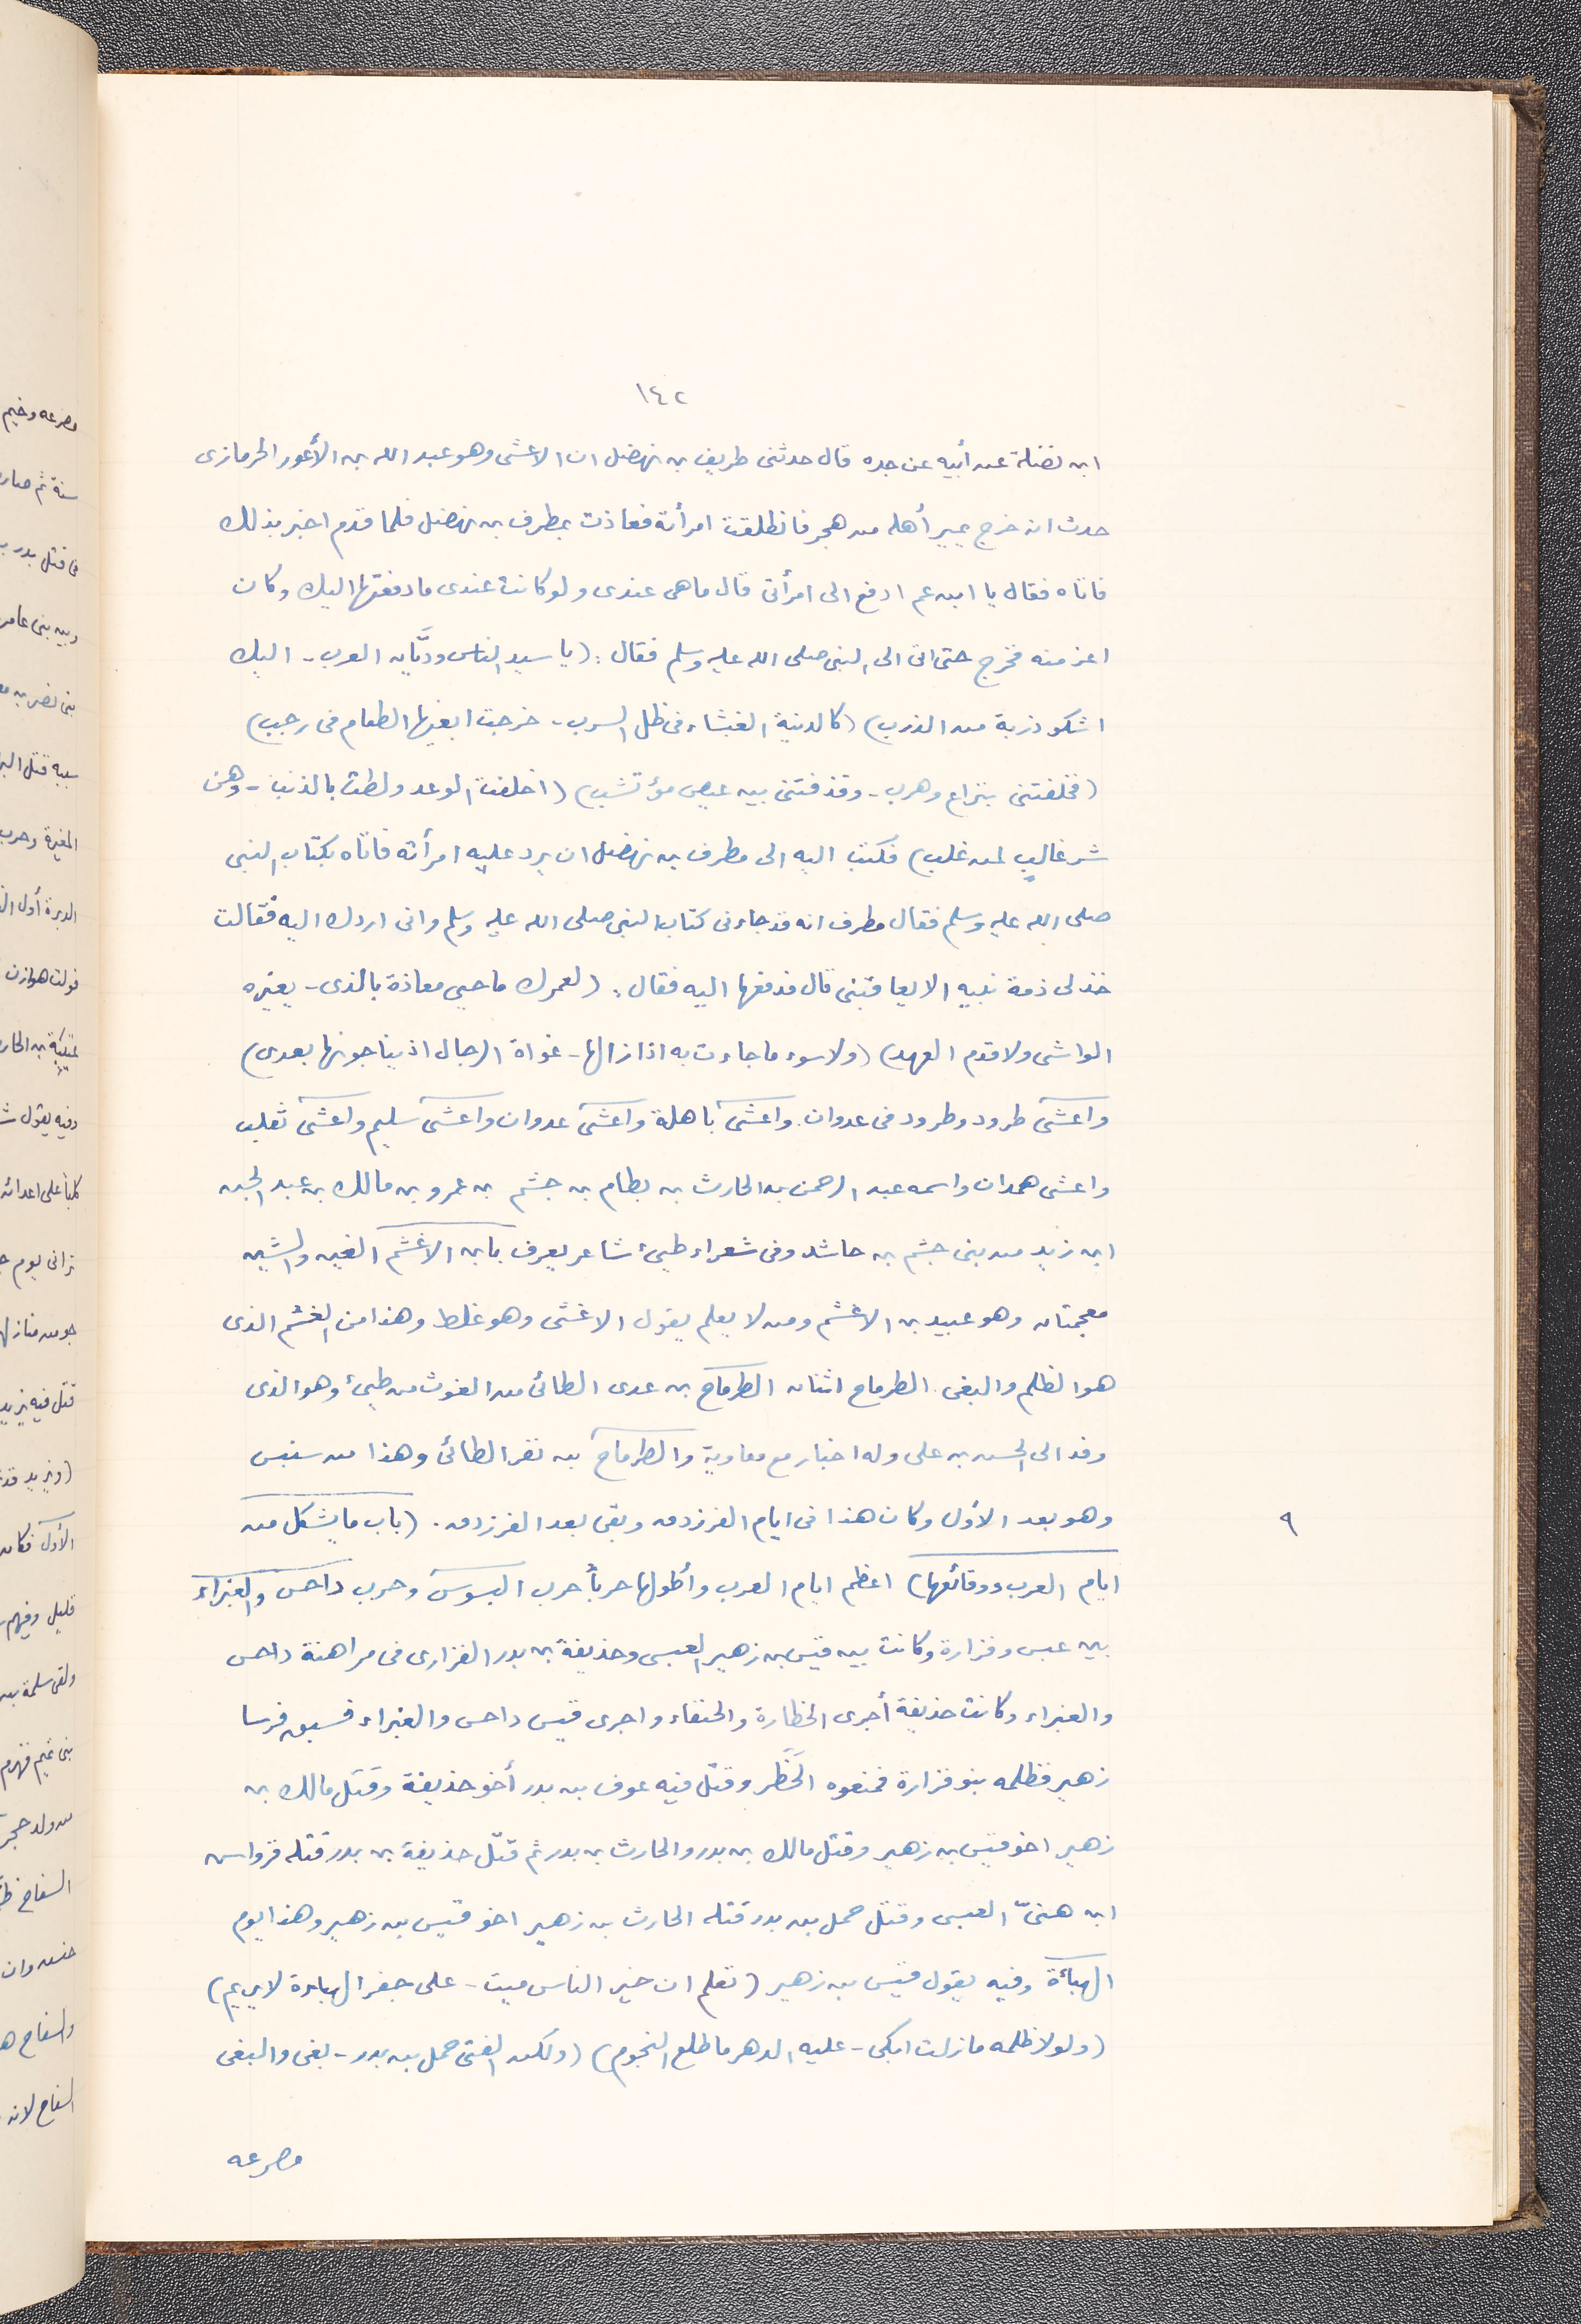 ١٤٢
ابن نضلة عن أبيه عن جده قال حدثنى طريف بن نهضل ان الاعشى وهو عبد الله بن الأعور الحرمازى
حدث انه خرج يمير أهله من هجر فانطلقت امرأته فعاذت بمطرف بن نهضل فلما قدم اخبر بذلك
فاتاه فقال يا ابن عم ادفع الى امرأتى قال ما هى عندى ولو كانت عندى ما دفعتها اليك وكان
اعز منه فخرج حتى اتى الى النبى صلى الله عليه وسلم فقال : (يا سيد الناس وديَّان العرب - اليك
اشكو ذربة من الذرب) (كالذئبة الغبشاء فى ظل السرب - خرجت ابغيها الطعام فى رجب)
(فخلفتنى بنزاع وهرب - وقذفتنى بين عيص مؤتشب) (اخلفت الوعد ولطت بالذنب - وهن
شر غالبٍ لمن غلب) فكتب اليه الى مطرف بن نهضل ان يرد عليه امرأته فاتاه بكتاب النبى
صلى الله عليه وسلم فقال مطرف انه قد جاءنى كتاب النبى صلى الله عليه وسلم وانى اردك اليه فقالت
خذ لى ذمة نبيه الا يعاقبنى قال فدفعها اليه فقال : (لعمرك ما حبى معاذة بالذى - يغيره
الواشى ولا قدم العهد) (ولا سوء ما جاءت به اذ ازالها - غواة الرجال اذ يناجونها بعدى)
واعشى طرود وطرود فى عدوان. واعشى باهلة واعشى عدوان واعشى سليم واعشى ثغلب
واعشى همدان واسمه عبد الرحمن بن الحارث بن نظام بن جشم بن عمرو بن مالك بن عبد الجن
ابن زيد من بنى جشم بن حاشد وفى شعراء طيئ شاعر يعرف بابن الاغشم الغين والشين
معجمتان وهو عبيد بن الاغشم ومن لا يعلم يقول الاغشى وهو غلط وهذا من الغشم الذى
هو الظلم والبغى. الطرماح اثنان الطرماح بن عدى الطائى من الغوث من طيئ وهو الذى
وفد الى الحسن بن على وله اخبار مع معاوية والطرماح بن نفر الطائى وهذا من سنبس
وهو بعد الأول وكان هذا فى ايام الفرزدق وبقى بعد الفرزدق. (باب ما يشكل من
٩
ايام العرب ووقائعها) اعظم ايام العرب وأطولها حرباً حرب البسوس وحرب داحس والغبراء
بين عبس وفزارة وكانت بين قيس بن زهير العبسى وحذيفة بن بدر الفزارى فى مراهنة داحس
والغبراء وكانت حذيفة أجرى الخطارة والحنفاء واجرى قيس داحس والغبراء فسبق فرسا
زهير فظلمه بنو فزارة فمنعوه الخطر وقتل فيه عوف بن بدر أخو حذيفة وقتل مالك بن
زهير اخو قيس بن زهير وقتل مالك بن بدر والحارث بن بدر ثم قتل حذيفة بن بدر قتله قرواس
ابن هنىّ العبسى وقتل حمل بن بدر قتله الحارث بن زهير اخو قيس بن زهير وهذا يوم
الهباءة وفيه يقول قيس بن زهير (تعلم ان خير الناس ميت - على جفر الهباءة لا يريم)
(ولولا ظلمه مازلت ابكى - عليه الدهر ما طلع النجوم) (ولكن الفتى حمل بن بدر - بغى والبغى
مصرعه